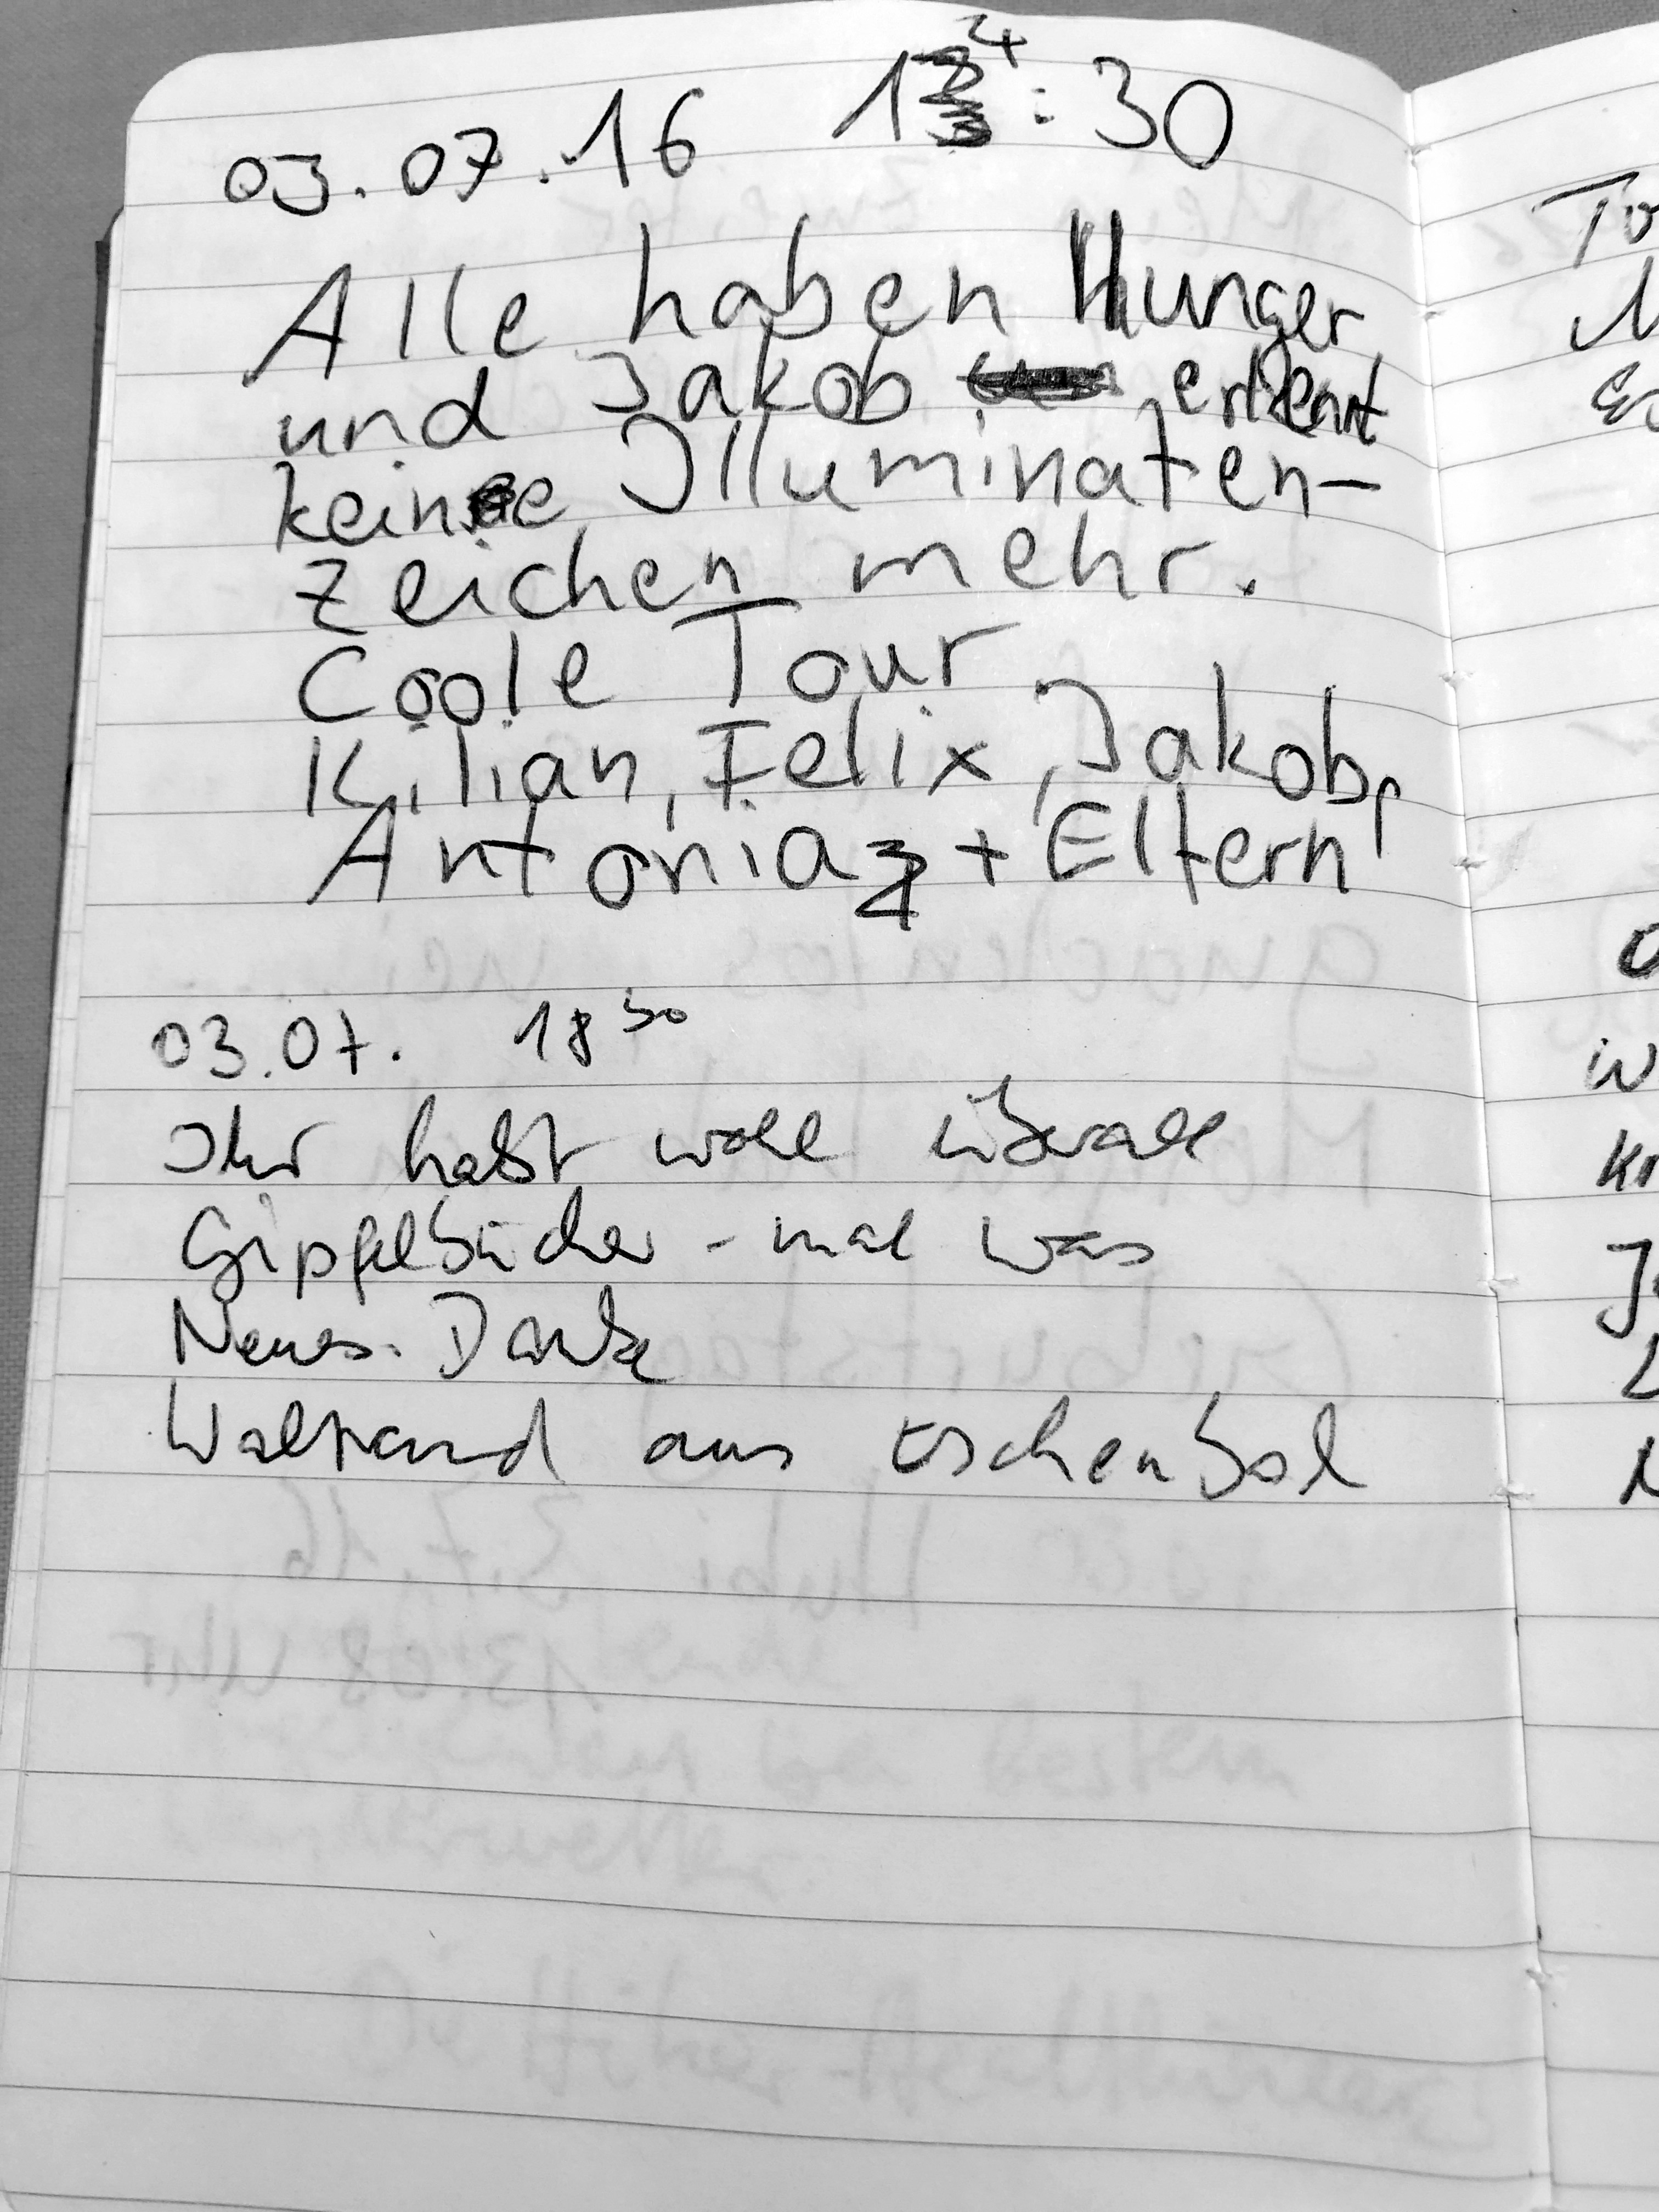 03.07.16 14:30
Alle haben Hunger
und Jakob erkennt
keine Illuminaten-
zeichen mehr.
Coole Tour
Kilian, Felix, Jakob,
Antonia + Eltern
03.07. 18 30
Ihr habt wohl überall
Gipfelbücher - mal was
Neues. Danke
Waltraud aus Eschenbal
To